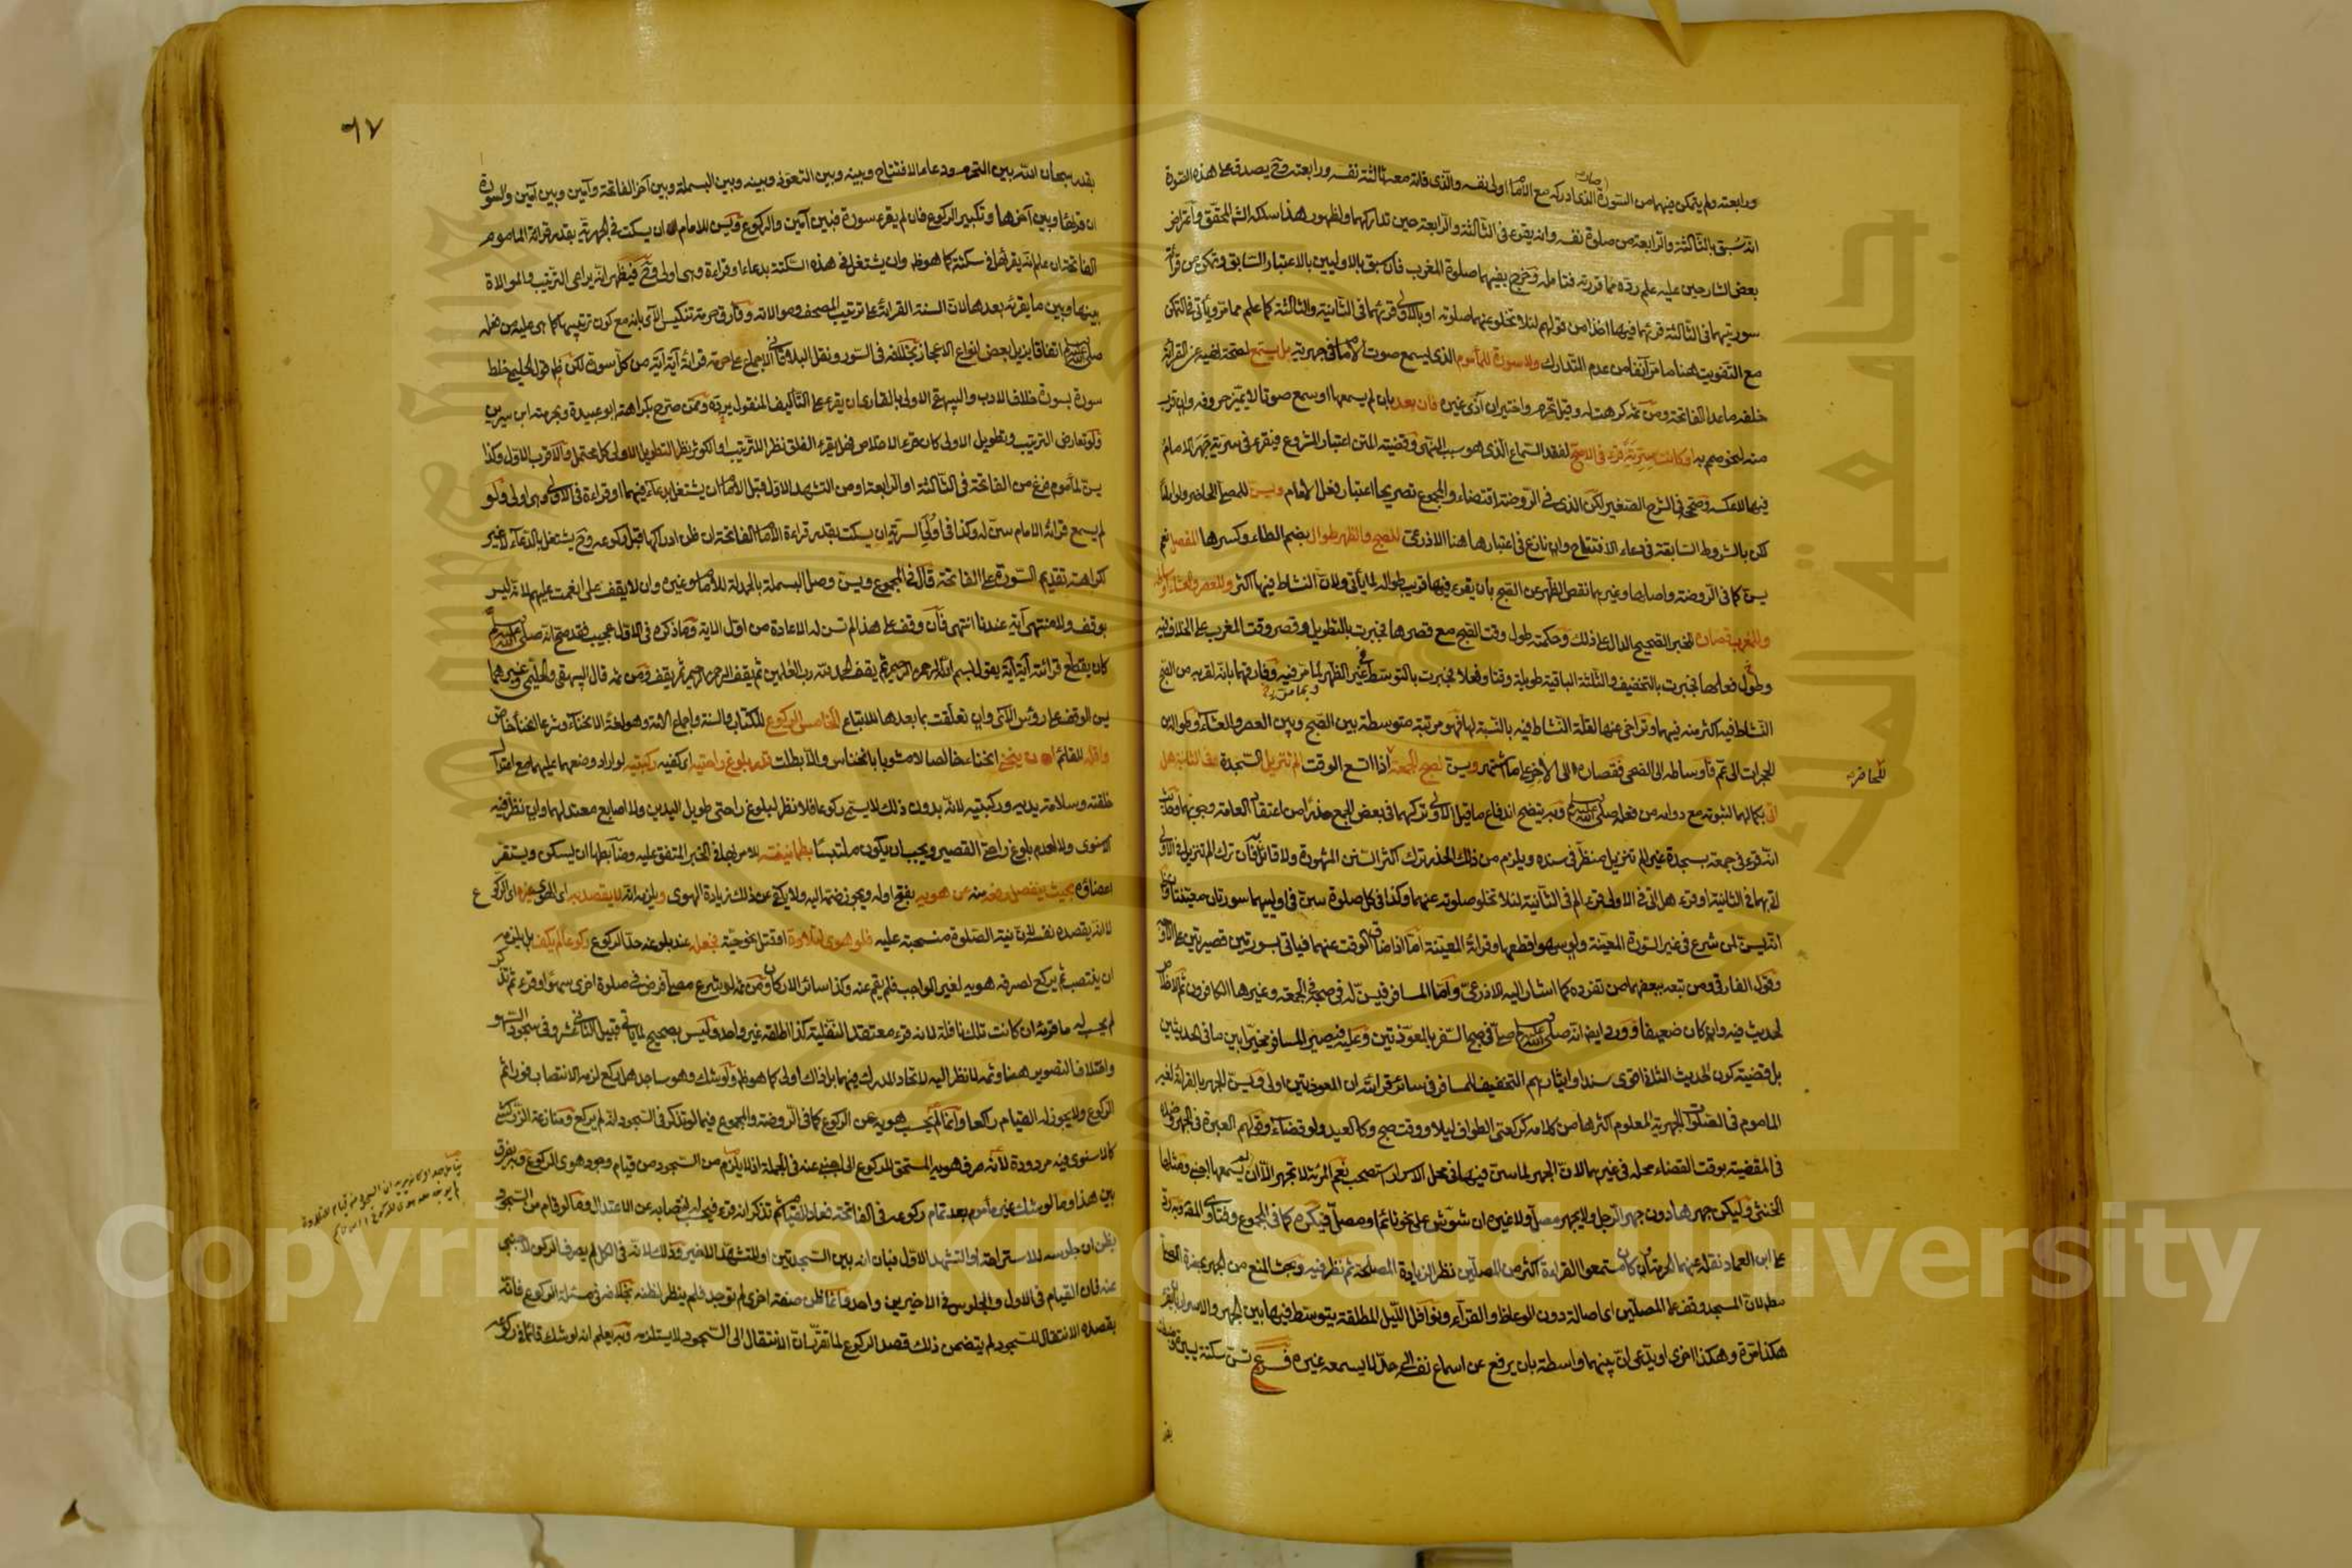 ورابعته ولم يتمكن فيهما من السورة الذي ادركه مع الامام اولى نفسه والذى فاته معه ثالثة نفسه ورابعته وح يصدق على هذه الصورة
انه سُبق بالثالثة والرابعة من صلوة نفسه وانه يقرء فى الثالثة والرابعة حين تداركهما ولظهور هذا سلكه الشم المحقق واعتراض
بعض الشارحين عليه علم رده مما قررته فتامله وخرج بفيهما صلوة المغرب فان سبق بالاوليين بالاعتبار السابق وتمكن من قرائة
سورتيهما فى الثالثة قرئهما فيها اخذا من قولهم لئلا تخلو عنهما صلوته او بالاولى قرئهما فى الثانية والثالثة كما علم مما مر ويأتى فى التمكن
مع التفويت هنا ما مر آنفا من عدم التدارك ولا سورة للمأموم الذى يسمع صوت الامام فى جهرية بل يستمع لصحة نهيه عن القرائة
خلفه ماعدا الفاتحة ومن ثمه كرهت له وقيل تحرم واختير ان آذى غيره فان بعد بان لم يسمعها او سمع صوتا لا يميز حروفه وان قرب
منه لنحو صمم به او كانت سرية قرء فى الاصح لفقد السماع الذى هو سبب النهى وقضية المتن اعتبار المشروع فيقرء فى سرية جهر الامام
فيها لا عكسه وصححه فى الشرح الصغير لكن الذى فى الروضة اقتضاء والمجموع تصريحا اعتبار فعل الامام ويسن للمصلى الحاضر
لكن بالشروط السابقة فى دعاء الافتتاح وان نازع فى اعتبارها هنا الاذرعى للصبح والظهر طوال بضم الطاء وكسرها المفصل نعم
يسن كما فى الروضة واصلها وغيرهما نقص الظهر عن الصبح بان يقرء فيها قريب طواله لما يأتى ولان النشاط فيها اكثر وللعصر والعشاء اوساطه
وللمغرب قصاره للخبر الصحيح الدال على ذلك وحكمته طول وقت الصبح مع قصرها فجبرت بالتطويل وقصر وقت المغرب على الخلاف فيه
وطول فعلها فجبرت بالتخفيف والثلثة الباقية طويلة وقتا وفعلا فجبرت بالتوسط فى غير الظهر لما مر فيه وفارقتهما بانه لقربه من الصبح
النشاط فيه اكثر منه فيهما وتراخى عنها لقلة النشاط فيه بالنسبة لها فهو مرتبة متوسطة بين الصبح وبين العصر والعشاء وطواله من
الحجرات الى عم فاوساطه الى الضحى فقصاره الى الآخر على ما اشتهر ويسن لصبح الجمعة اذا اتسع الوقت الم تنزيل السجدة وفى الثانية هل
اتى بكمالهما لثبوته مع دوامه من فعله صلى الله عليه وسلم وبه يتضح اندفاع ما قيل الاولى تركهما فى بعض الجمع حذرا من اعتقاد العامة وجوبهما
انه قرء فى جمعة بسجدة غير الم تنزيل منظر فى سنده ويلزم من ذلك الحذر ترك اكثر السنن المشهورة ولا قائل به فان ترك الم تنزيل فى الاولى
اتى بهما فى الثانية او قرء هل اتى فى الاولى قرء الم فى الثانية لئلا تخلو صلوته عنهما وكذا فى كل صلوة سن فى اولييها سورتان معينتان
انه يسن لمن شرع فى غير السورة المعينة ولو سهوا قطعها وقرائة المعينة اما اذا ضاق الوقت عنهما فياتى بسورتين قصيرتين على الاوجه
وقول الفارقى ومن تبعه ببعضهما من تفرده كما اشار اليه الاذرعى واما المسافر فيسن له فى صبحه فى الجمعة وغيرها الكافرون ثم الاخلاص
لحديث فيه وان كان ضعيفا وورد ايضا انه صلى الله عليه وسلم صلى فى صبح السفر بالمعوذتين وعليه فيصير المسافر مخيرا بين ما فى الحديثين
بل قضية كون الحديث الثانى اقوى سندا وايثارهم التخفيف للمسافر فى سائر قرائته ان المعوذتين اولى ويسن الجهر بالقرائة لغير
الماموم فى الصلوات الجهرية المعلوم اكثرها من كلامه كركعتى الطواف ليلا ووقت صبح وكالعيد ولو قضاء وقولهم العبرة فى الجهر وضده
فى المقضية بوقت القضاء محله فى غيرهما لان الجهر لما سن فيهما فى محل الاسرار استصحب نعم المرئة لا تجهر الا ان لم يسمعها اجنبى ومثلها
الخنثى وليكن جهرها دون جهر الرجل ولا يجهر مصل ولا غيره ان شوش على نحو نائم او مصل فيكره كما فى المجموع وفتاوى المقدوبه رد
على ابن العماد نقله عنهما الحرمة ان كان مستمعوا القراءة اكثر من المصلين نظرا لزيادة المصلحة ثم نظر فيه وبحث المنع من الجهر بحضرة المصلى
مطلقا لان المسجد وقف على المصلين اى اصالة دون الوعاظ والقراء ونوافل الليل المطلقة يتوسط فيها بين الجهر والاسرار بان يقرء
هكذا مرة وهكذا اخرى او يدعى ان بينهما واسطة بان يرفع عن اسماع نفسه الى حد لا يسمعه غيره فرع تسن سكتة يسيرة
للحاضر
٦٧
بقدر سبحان الله بين التحرم ودعاء الافتتاح وبينه وبين التعوذ وبينه وبين البسملة وبين آخر الفاتحة وآمين وبين آمين والسورة
ان قرئها وبين آخرها وتكبير الركوع فان لم يقرء سورة فبين آمين والركوع ويسن للامام ان يسكت فى الجهرية بقدر قرائة الماموم
الفاتحة ان علم انه يقرئها فى سكتته كما هو ظ وان يشتغل فى هذه السكتة بدعاء او قراءة وهى اولى وح فيظهر انه يراعى الترتيب والموالاة
بينها وبين ما يقرئه بعدها لان السنة القرائة على ترتيب المصحف وموالاته وفارق حرمة تنكيس الآى بانه مع كون ترتيبها كما هى عليه من فعله
صلى الله عليه وسلم اتفاقا يزيل بعض انواع الاعجاز بخلافه فى السور ونقل الباقلانى الاجماع على حرمة قرائة آية آية من كل سورة لكن ظ قول الحليمى خلط
سورة بسورة خلاف الادب والبيهقى الاولى بالقارى ان يقرء على التأليف المنقول يرده وممن صرح بكراهته ابو عبيدة وبحرمته ابن سيرين
ولو تعارض الترتيب وتطويل الاولى كان قرء الاخلاص فهل يقرء الفلق نظرا للترتيب او الكوثر نظرا لتطويل الاولى كل محتمل والاقرب الاول وكذا
يسن لمأموم فرغ من الفاتحة فى الثالثة او الرابعة او من التشهد الاول قبل الامام ان يشتغل بدعاء فيهما او قراءة فى الاولى وهى اولى ولو
لم يسمع قرائة الامام سن له وكذا فى اوليى السرية ان يسكت بقدر قراءة الامام الفاتحة ان ظن ادراكها قبل ركوعه وح يشتغل بالدعاء لا غير
لكراهة تقديم السورة على الفاتحة قال فى المجموع ويسن وصل البسملة بالحمدلة للامام وغيره وان لا يقف على انعمت عليهم لانه ليس
بوقف ولا منتهى آية عندنا انتهى فان وقف على هذا لم تسن له الاعادة من اول الاية وما ذكره فى الاول عجيب فقد صح انه صلى الله عليه وسلم
كان يقطع قرائته آية آية يقول بسم الله الرحمن الرحيم ثم يقف الحمد لله رب العلمين ثم يقف الرحمن الرحيم ثم يقف ومن ثمه قال البيهقى والحليمى وغيرهما
يسن الوقف على رؤس الآى وان تعلقت بما بعدها للاتباع الخامس الركوع للكتاب والسنة واجماع الامة وهو لغة الانحناء وشرعا انحناء خاص
واقله للقائم ان ينحنى انحناء خالصا لا مشوبا بانخناس والا بطلت قدر بلوغ راحتيه اى كفيه ركبتيه لو اراد وضعهما عليهما مع اعتدال
خلقته وسلامة يديه وركبتيه لانه بدون ذلك لا يسمى ركوعا فلا نظر لبلوغ راحتى طويل اليدين ولا اصابع معتدلهما وان نظر فيه
الاسنوى ولا لعدم بلوغ راحتى القصير ويجب ان يكون ملتبسا بطمانينة للامر بها فى الخبر المتفق عليه وضابطها ان يسكن ويستقر
اعضاؤه بحيث ينفصل رفعه منه عن هويه بفتح اوله ويجوز ضمه اليه ولا يكفى عن ذلك زيادة الهوى ويلزمه انه لا يقصد به اى الهوى غيره اى الركوع
لا انه يقصده نفسه لان نية الصلوة منسحبة عليه فلو هوى لتلاوة او قتل نحو حية فجعله عند بلوغه حد الركوع ركوعا لم يكف بل يلزمه
ان ينتصب ثم يركع لصرفه هويه لغير الواجب فلم يقم عنه وكذا سائر الاركان ومن ثمه لو شرع مصلى فرض فى صلوة اخرى سهوا وقرء ثم تذكر
لم يحسب له ما قرئه ان كانت تلك نافلة لانه قرء معتقد النفلية كذا اطلقه غير واحد وليس بصحيح لما يأتى قبيل الثانى عشر وفى سجود السهو
واختلاف التصوير هنا وثمه لا نظر اليه لاتحاد المدرك فيهما بل ذاك اولى كما هو ظ ولو شك وهو ساجد هل ركع لزمه الانتصاب فورا ثم
الركوع ولا يجوز له القيام راكعا وانما لم يحسب هويه عن الركوع كما فى الروضة والمجموع فيما لو تذكر فى السجود انه لم يركع ومنازعة الزركشى
كالاسنوى فيه مردودة لانه صرف هويه المستحق للركوع الى اجنبى عنه فى الجملة اذ لا يلزم من السجود من قيام وجود هوى الركوع وبه يفرق
بين هذا وما لو شك غير مأموم بعد تمام ركوعه فى الفاتحة فعاد للقيام ثم تذكر انه قرء فيحسب له انتصابه عن الاعتدال وما لو قام من السجود
يظن ان جلوسه للاستراحة او التشهد الاول فبان انه بين السجدتين او للتشهد الاخير وذلك لانه فى الكل لم يصرف الركن لاجنبى
عنه فان القيام فى الاول والجلوس فى الاخيرين واحد وانما ظن صفة اخرى لم توجد فلم ينظر لظنه بخلافه فى مسئلة الركوع فانه
بقصده الانتقال للسجود لم يتضمن ذلك قصد الركوع لما تقرر ان الانتقال الى السجود لا يستلزمه وبه يعلم انه لو شك قائما فى ركوعه
Copyright © King Saud University